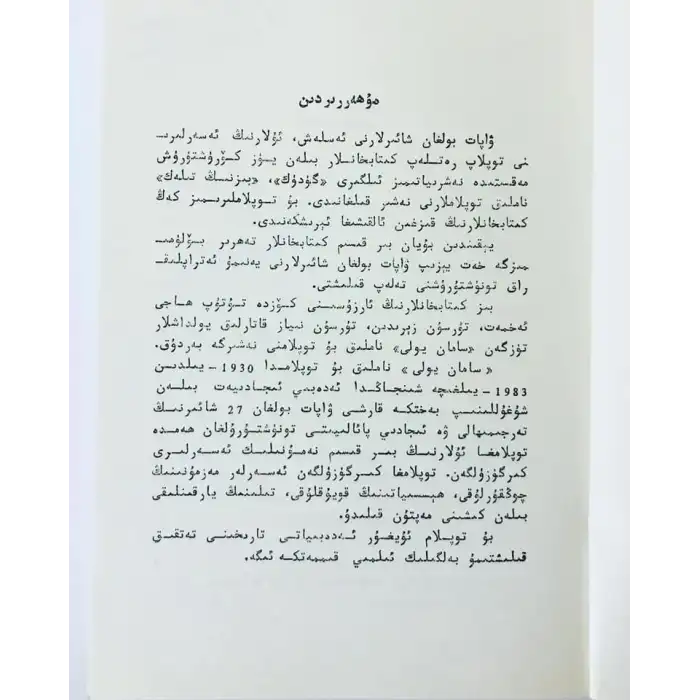 مۇھەررىردىن
ۋاپات بولغان شائىرلارنى ئەسلەش، ئۇلارنىڭ ئەسەرلىرى‍ـ
نى توپلاپ رەتلەپ كىتابخانلار بىلەن يۈز كۆرۈشتۈرۈش
مەقسىتىدە نەشرىياتىمىز ئىلگىرى «گۈدۈك»، «بىزنىڭ تىلەك»
ناملىق توپلاملارنى نەشىر قىلغانىدى. بۇ توپلاملىرىمىز كەڭ
كىتابخانلارنىڭ قىزغىن ئالقىشىغا ئېرىشكەنىدى.
يېقىندىن بۇيان بىر قىسىم كىتابخانلار تەھرىر بۆلۈمىـ
مىزگە خەت يېزىپ ۋاپات بولغان شائىرلارنى يەنىمۇ ئەتراپلىقـ
راق تونۇشتۇرۇشنى تەلەپ قىلىشتى.
بىز كىتابخانلارنىڭ ئارزۇسىنى كۆزدە تۇتۇپ ھاجى
ئەخمەت، تۇرسۇن زېردىن، تۇرسۇن نىياز قاتارلىق يولداشلار
تۈزگەن «سامان يولى» ناملىق بۇ توپلامنى نەشىرگە بەردۇق.
«سامان يولى» ناملىق بۇ توپلامدا 1930 - يىلدىن
1983 - يىلغىچە شىنجاڭدا ئەدەبىي ئىجادىيەت بىلەن
شۇغۇللىنىپ بەختكە قارشى ۋاپات بولغان 27 شائىرنىڭ
تەرجىمىھالى ۋە ئىجادىي پائالىيىتى تونۇشتۇرۇلغان ھەمدە
توپلامغا ئۇلارنىڭ بىر قىسىم نەمۇنىلىك ئەسەرلىرى
كىرگۈزۈلگەن. توپلامغا كىرگۈزۈلگەن ئەسەرلەر مەزمۇنىنىڭ
چوڭقۇرلۇقى، ھېسسىياتىنىڭ قويۇقلۇقى، تىلىنىڭ يارقىنلىقى
بىلەن كىشىنى مەپتۇن قىلىدۇ.
بۇ توپلام ئۇيغۇر ئەدەبىياتى تارىخىنى تەتقىق
قىلىشتىمۇ بەلگىلىك ئىلمىي قىممەتكە ئىگە.